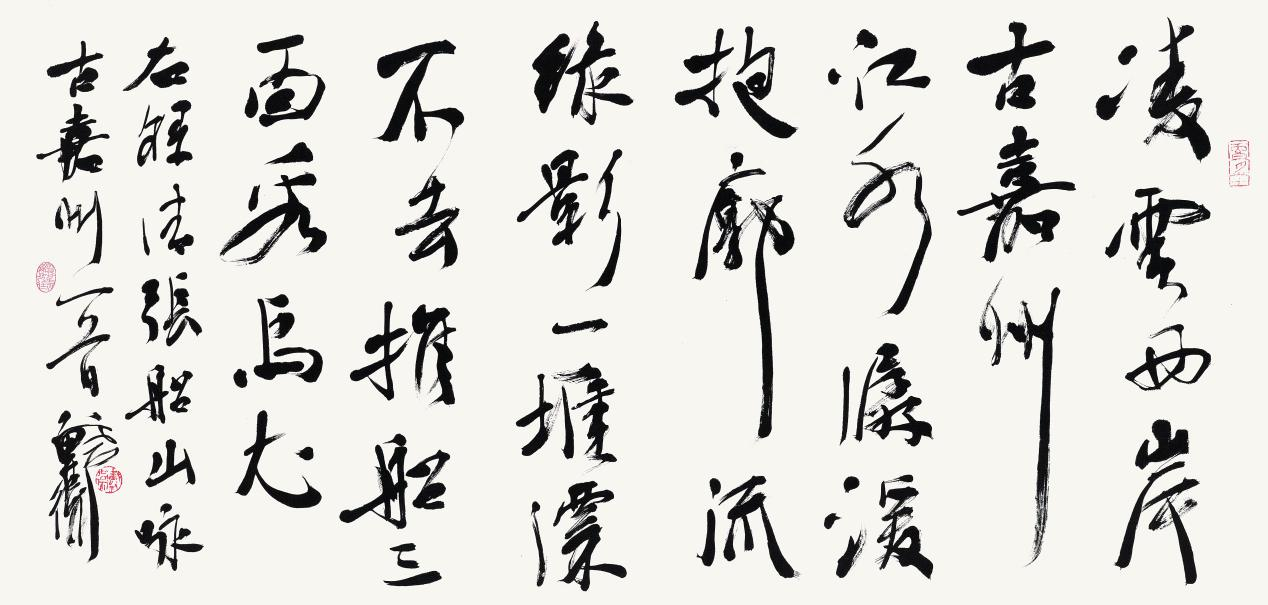 凌雲西岸
古嘉州
江水潺湲
抱廓流
綠影一堆漂
不去推船三
面看烏尤
右錄清張船山咏
古嘉州一首戴衛